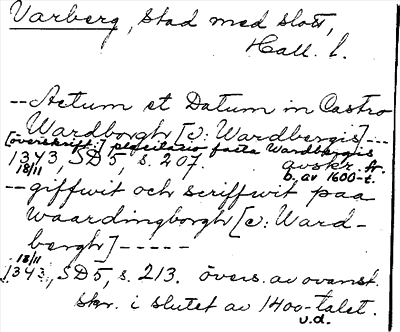 Varberg, stad med slott,
Hall. l.
-- Actum et Datum in Castro
Wardborgh [c: Wardbergis] ---
[överskrift:] placitacio facta Wardbergis
1343, SD 5, s. 207. avskr. fr.
18/11 b. av 1600-t.
-- giffwit och scriffwit paa
waardingborgh [c: Ward-
bergh] -----
18/11
1343, SD 5, s. 213. övers. av ovanst.
skr. i slutet av 1400-talet.
v.d.